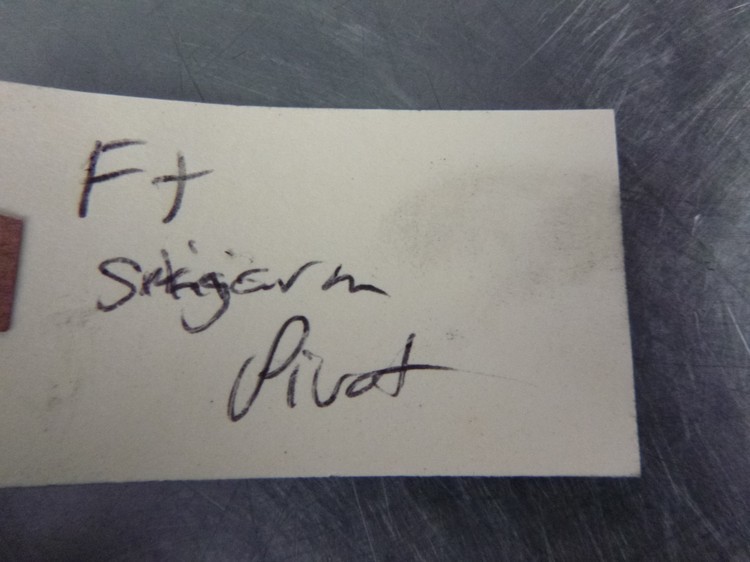 Ft
Swingarm
Pivot